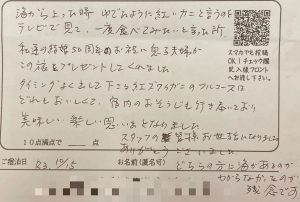 海から上った時 ゆでたように紅いカニと言うのを
テレビで見て、一度食べてみたいと言った所
私達の結婚50周年のお祝いに息子夫婦が
この旅をプレゼントしてくれました
タイミングよくまして下ニックエスワイガニのフルコースは
どれもおいしくて 館内のおそうじも行き届いており
美味しい 楽しい思い出となりました
スタッフの皆様お世話になりました
ありがとうございました
10点満点で 点
スマホでも投稿
OK!チェック欄
記入後フロント
へお渡し下さい。
ご宿泊日 R3.12/15 お名前(匿名可)
どちらの方に海があるのか
わからなかったのが
残念です